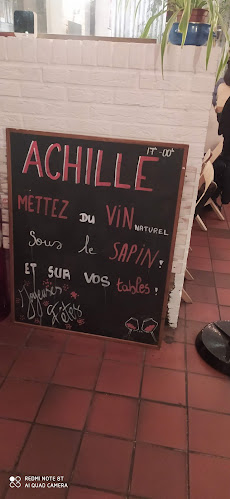 17h-00h
ACHILLE
METTEZ DU VIN NATUREL
Sous le SAPIN !
ET SUR VOS tables !
Joyeuses
Fêtes
REDMI NOTE 8T
AI QUAD CAMERA